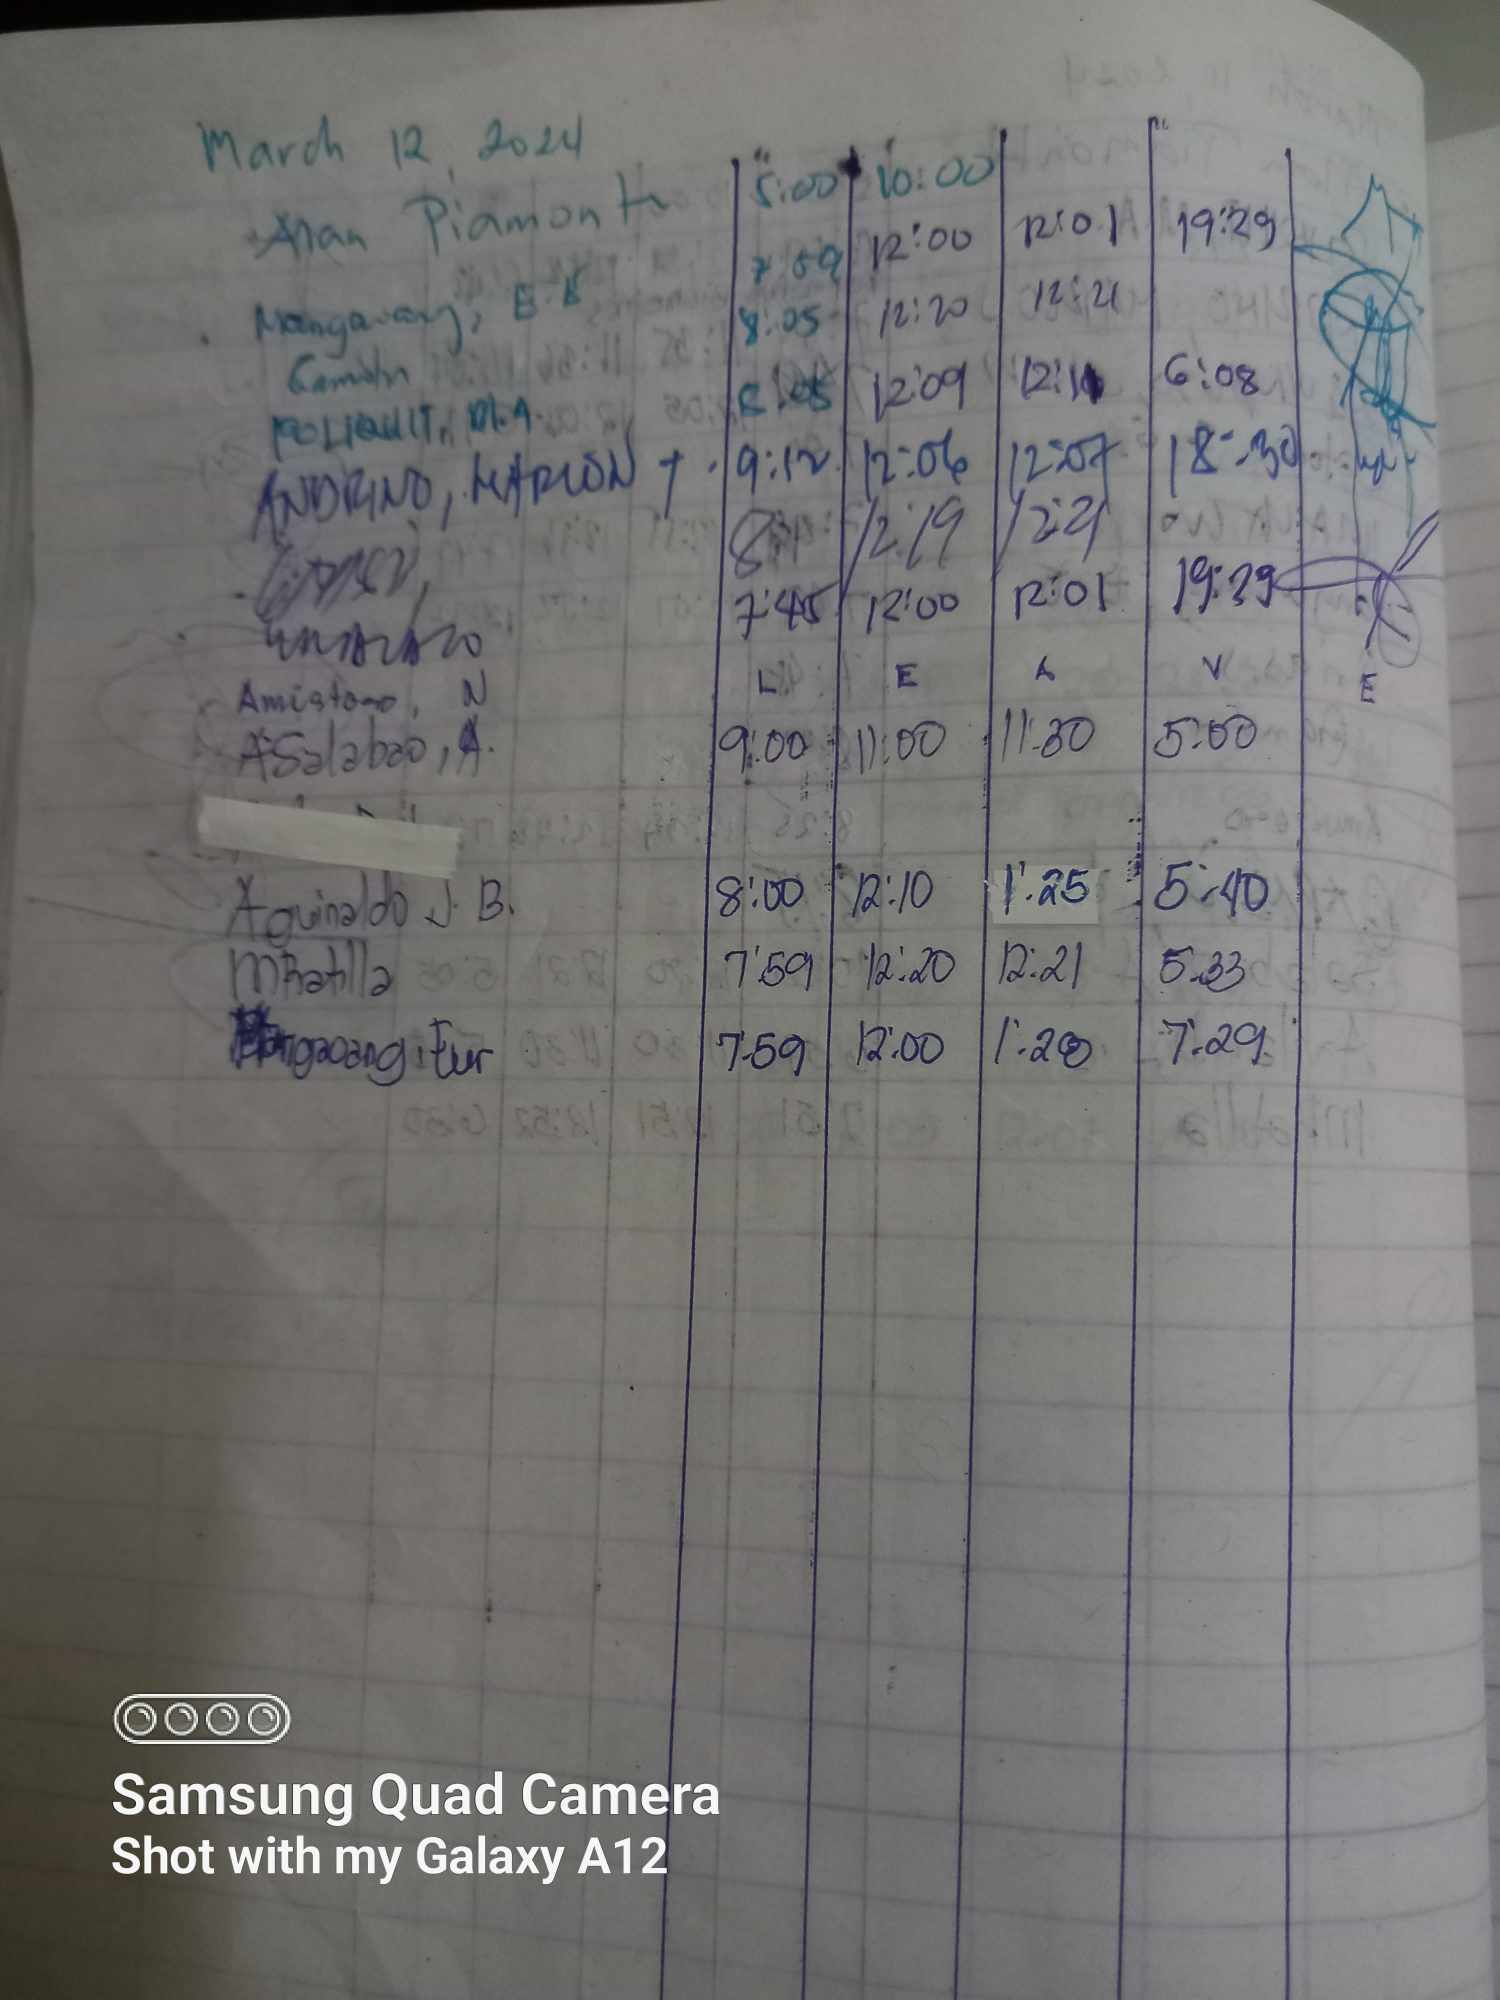 March 12, 2024
Alan Piamonte 5:00 10:00
7:59 12:00 12:01 19:29
E.B 8:05 12:20 12:21
8:05 12:09 12:11 6:08
M.A.
ANDRINO, MARLON 9:12 12:06 12:07 18:30
12:19 12:21
7:45 12:00 12:01 19:29
Amistoso, N L E A V E
ASalabao, A. 9:00 11:00 11:30 5:00
Aguinaldo J. B. 8:00 12:10 1:25 5:40
MRatilla 7:59 12:20 12:21 5:33
Eur 7:59 12:00 1:28 7:29
Samsung Quad Camera
Shot with my Galaxy A12